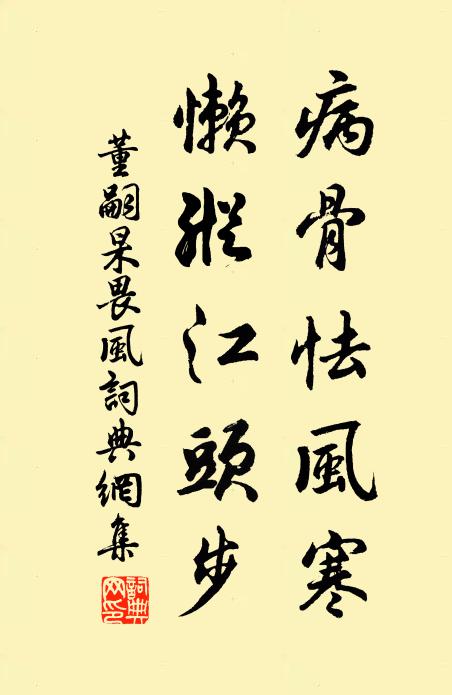 病骨怯風寒
懶縱江頭步
董嗣杲畏風詞典網集
詞典網印